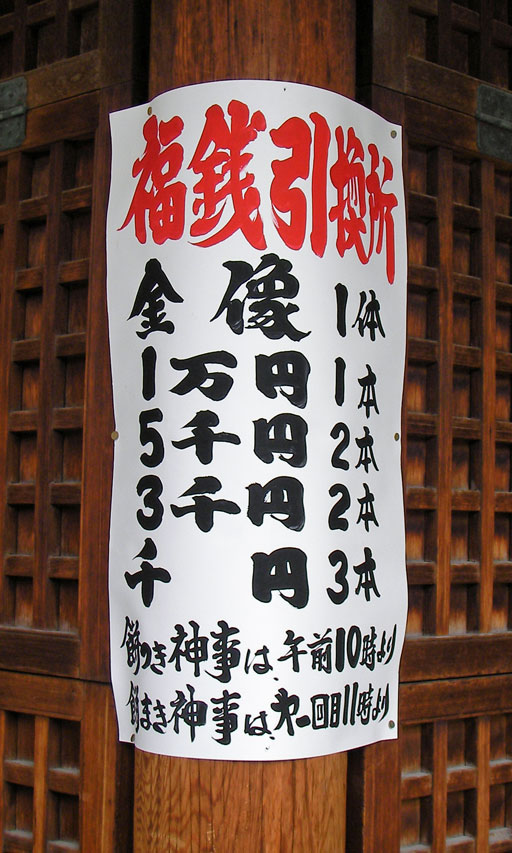 福銭引換所
金像 1体
1万円 1本
5千円 2本
3千円 2本
千円 3本
餅つき神事は、午前10時より
餅まき神事は、才一回目11時より